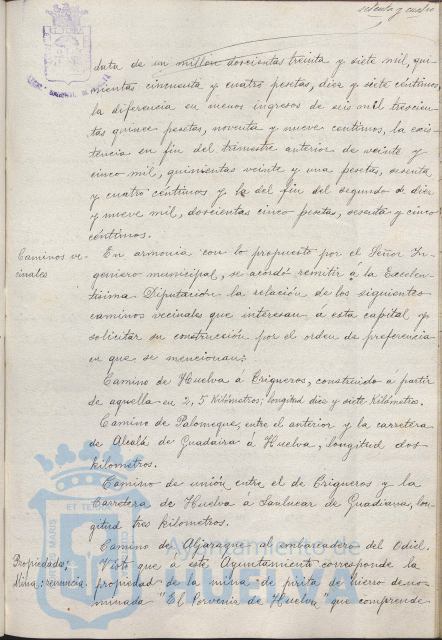 setenta y cuatro
data de un millón doscientas treinta y siete mil, qui-
nientas cincuenta y cuatro pesetas, diez y siete céntimos,
la diferencia en menos ingresos de seis mil trescien-
tas quince pesetas, noventa y nueve céntimos, la exis-
tencia en fin del trimestre anterior de veinte y
cinco mil, quinientas veinte y una pesetas, sesenta
y cuatro céntimos y la del fin del segundo de diez
y nueve mil, doscientas cinco pesetas, sesenta y cinco
céntimos.
Caminos ve-
cinales
En armonia con lo propuesto por el Señor In-
geniero municipal, se acordó remitir á la Excelen-
tísima Diputación la relación de los siguientes
caminos vecinales que interesan a esta capital y
solicitar su construcción por el orden de preferencia
en que se mencionan:
Camino de Huelva á Trigueros, construido á partir
de aquella en 2,5 Kilómetros; longitud diez y siete Kilómetros.
Camino de Palomeque, entre el anterior y la carretera
de Alcalá de Guadaira á Huelva, longitud dos
kilometros.
Camino de unión entre el de Trigueros y la
Carretera de Huelva á Sanlucar de Guadiana, lon-
gitud tres kilometros.
Camino de Aljaraque al embarcadero del Odiel.
Propiedades;
Mina; renuncia.
Visto que a este Ayuntamiento corresponde la
propiedad de la mina de pirita de hierro deno-
minada "El Porvenir de Huelva" que comprende
Ayuntamiento de
HUELVA